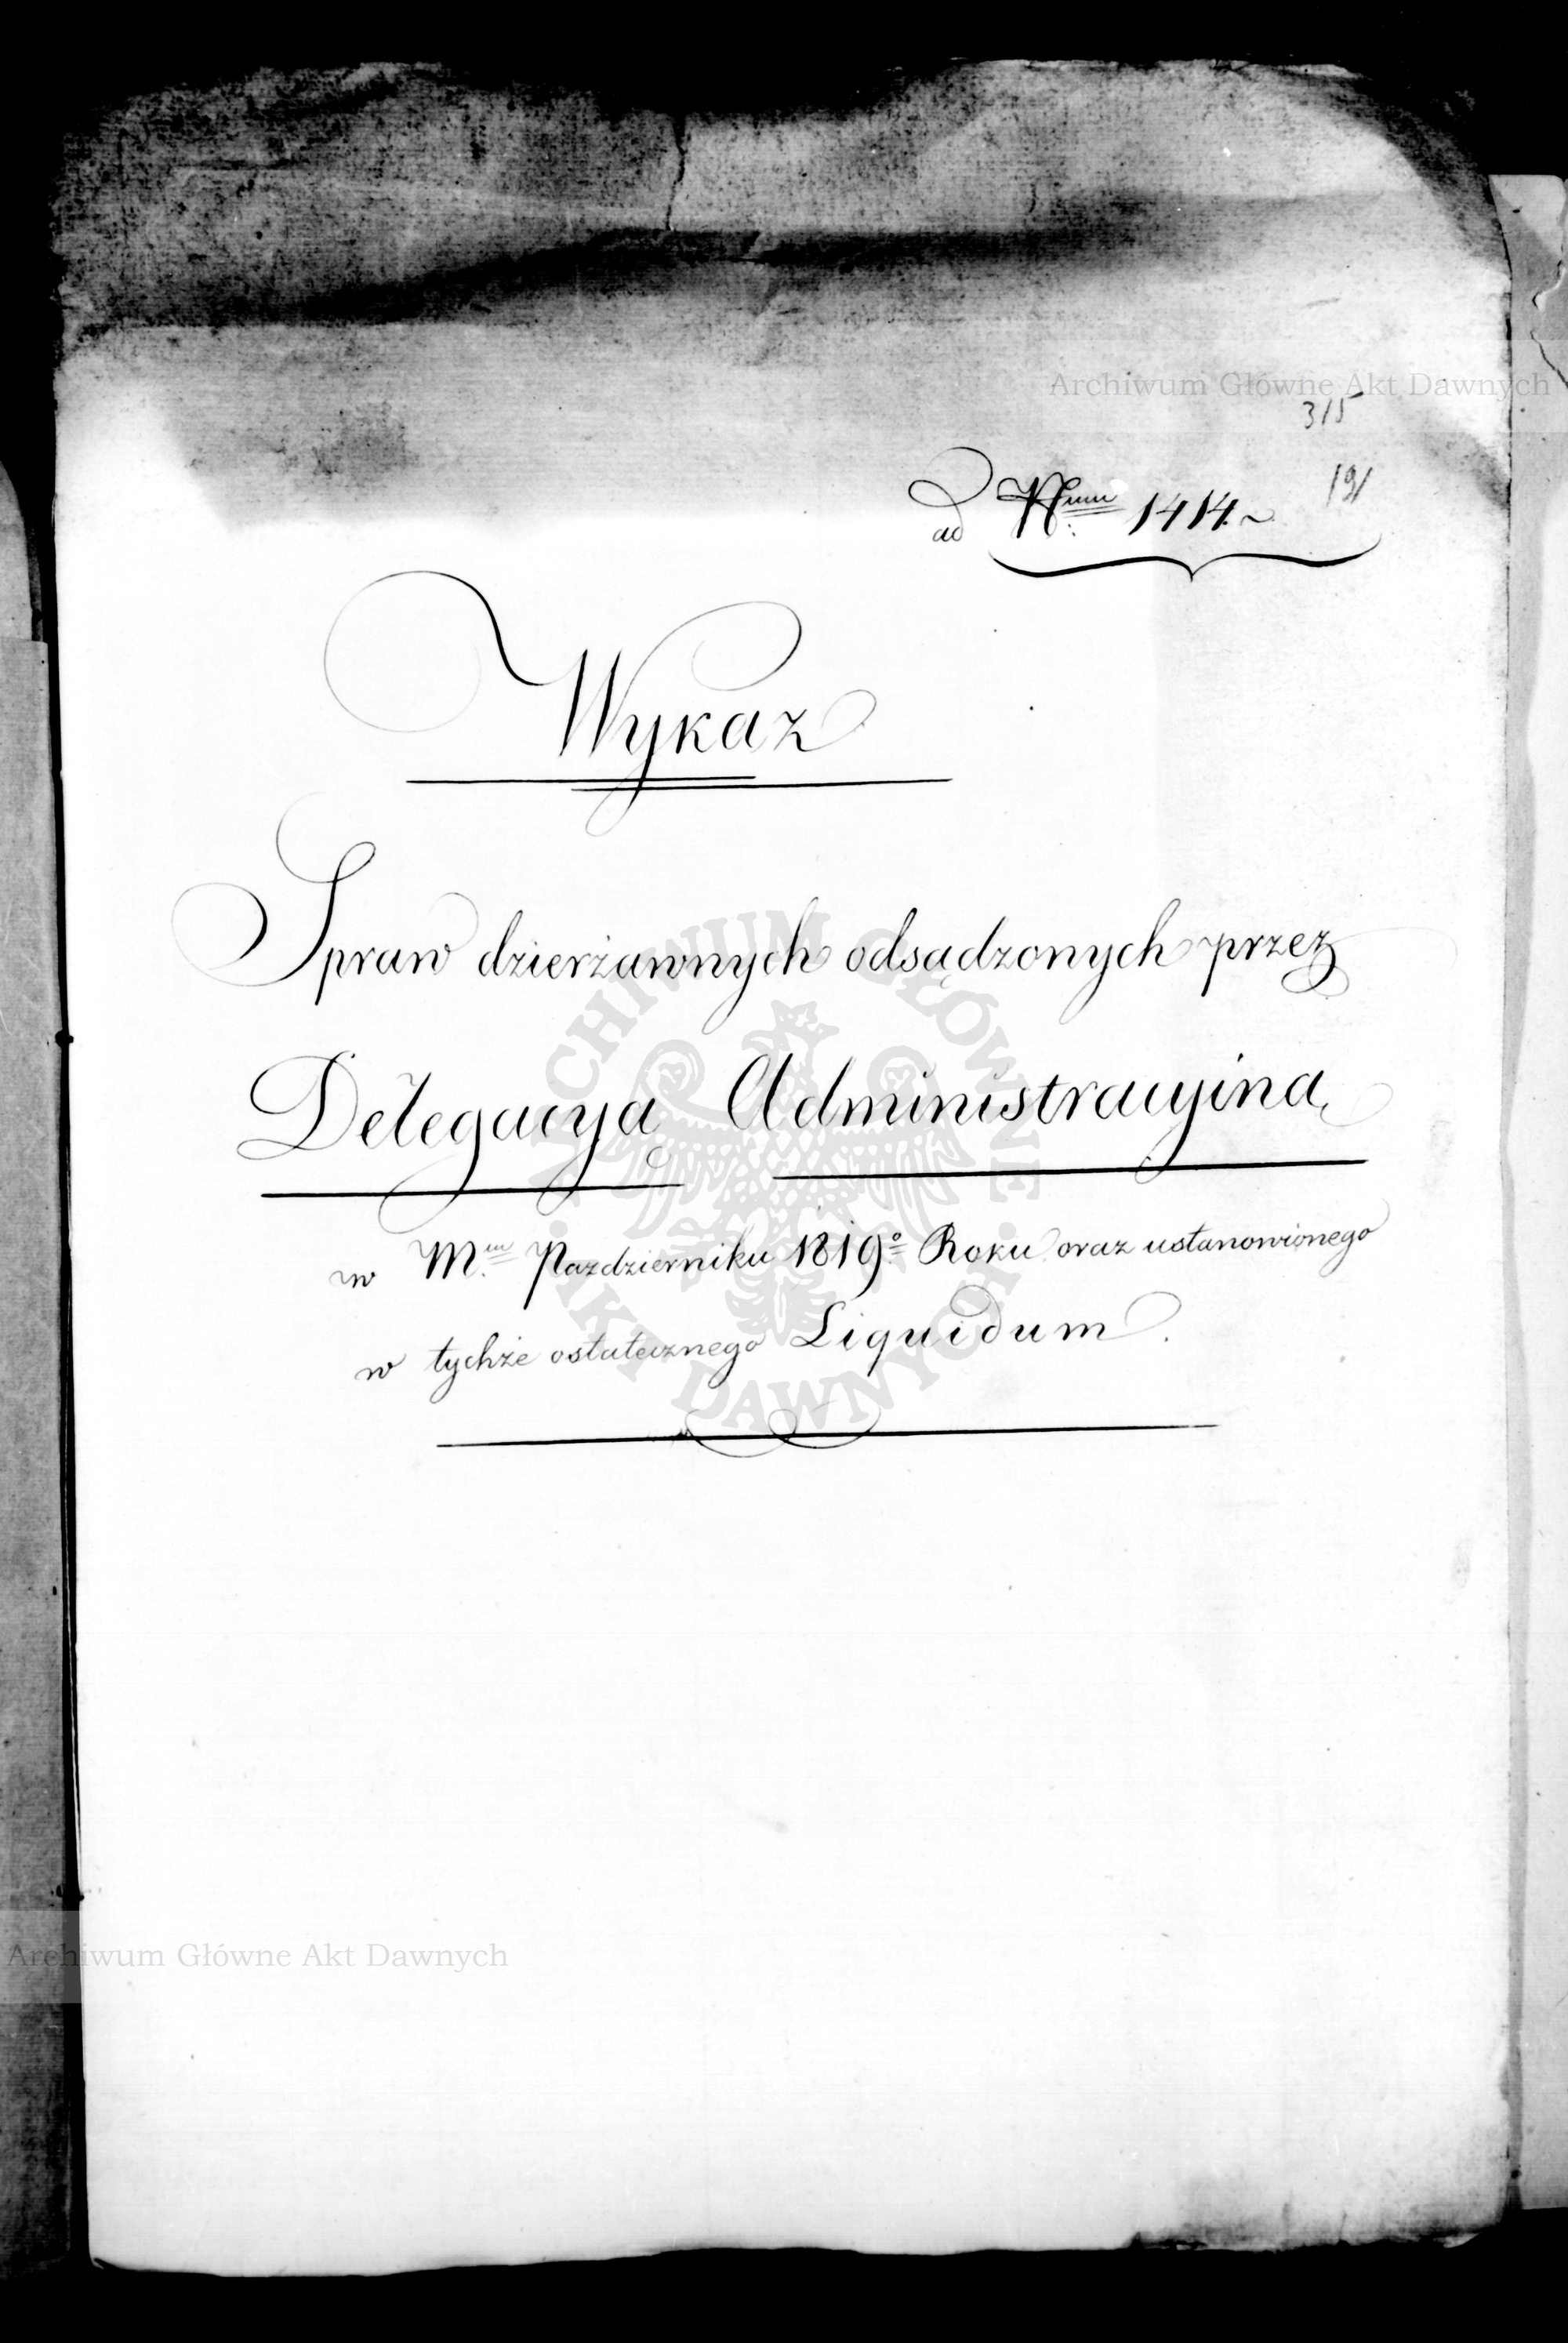 Archiwum Główne Akt Dawnych
315
191
ad Nrum 1414.
Wykaz
Spraw dzierżawnych odsądzonych przez
Delegacyą Administracyiną
w M. Pazdzierniku 1819º Roku oraz ustanowionego
w tychże ostatecznego Liquidum.
ARCHIWUM GŁÓWNE AKT DAWNYCH
Archiwum Główne Akt Dawnych